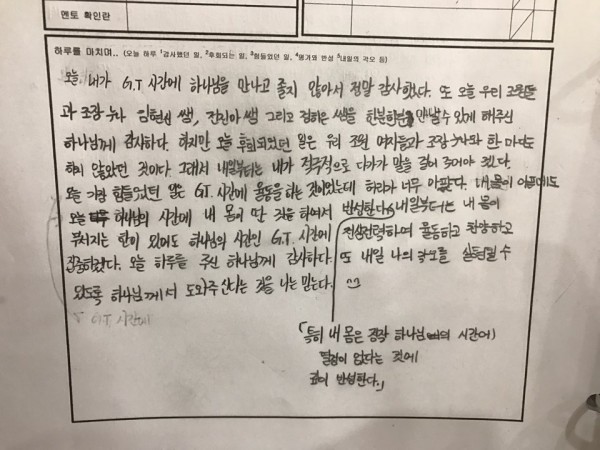 멘토 확인란
하루를 마치며.. (오늘 하루 ¹감사했던 일, ²후회되는 일, ³힘들었던 일, ⁴평가와 반성 ⁵내일의 각오 등)
오늘 내가 G.T 시간에 하나님을 만나고 졸지 않아서 정말 감사했다. 또 오늘 우리 조원들
과 조장 누나 쌤, 쌤 그리고 쌤을 만날 수 있게 해주신
하나님께 감사하다. 하지만 오늘 후회되었던 일은 우리 조원 여자들과 조장 누나와 한 마디도
하지 않았던 것이다. 그래서 내일부터는 내가 적극적으로 다가가 말을 걸어 주어야 겠다.
오늘 가장 힘들었던 일은 G.T. 시간에 율동을 하는 것이었는데 허리가 너무 아팠다. 내 몸이 아픈데도
오늘 하나님의 시간에 내 몸이 딴 짓을 하여서 반성한다. 내일부터는 내 몸이
부서지는 한이 있어도 하나님의 시간인 G.T. 시간에 전심전력하여 율동하고 찬양하고
집중하겠다. 오늘 하루를 주신 하나님께 감사하다. 또 내일 나의 각오를 실천될 수
있도록 하나님께서 도와주신다는 것을 나는 믿는다.
G.T. 시간에
「특히 내 몸은 정작 하나님 의 시간에
열정이 없다는 것에
깊이 반성한다.」